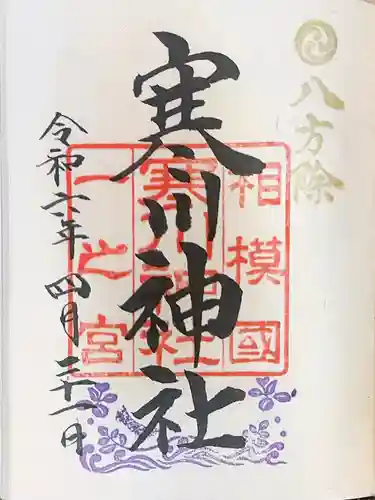 八方除
相模國
寒川神社
一之宮
寒川神社
令和六年四月二十一日